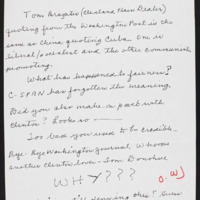 Tom Brazaitis (Cleveland Plain Dealer)
quoting from the Washington Post is the
same as China quoting Cuba. One is
liberal/socialist and the other communist
promoting.
What has happened to fairness?
C-SPAN has forgotten the meaning.
Did you also make a pact with
Clinton? Looks so —
Too bad you used to be credible.
Bye-Bye Washington Journal, Whoever
another Clinton lover - Tom Donohue
WHY???
O.W.J